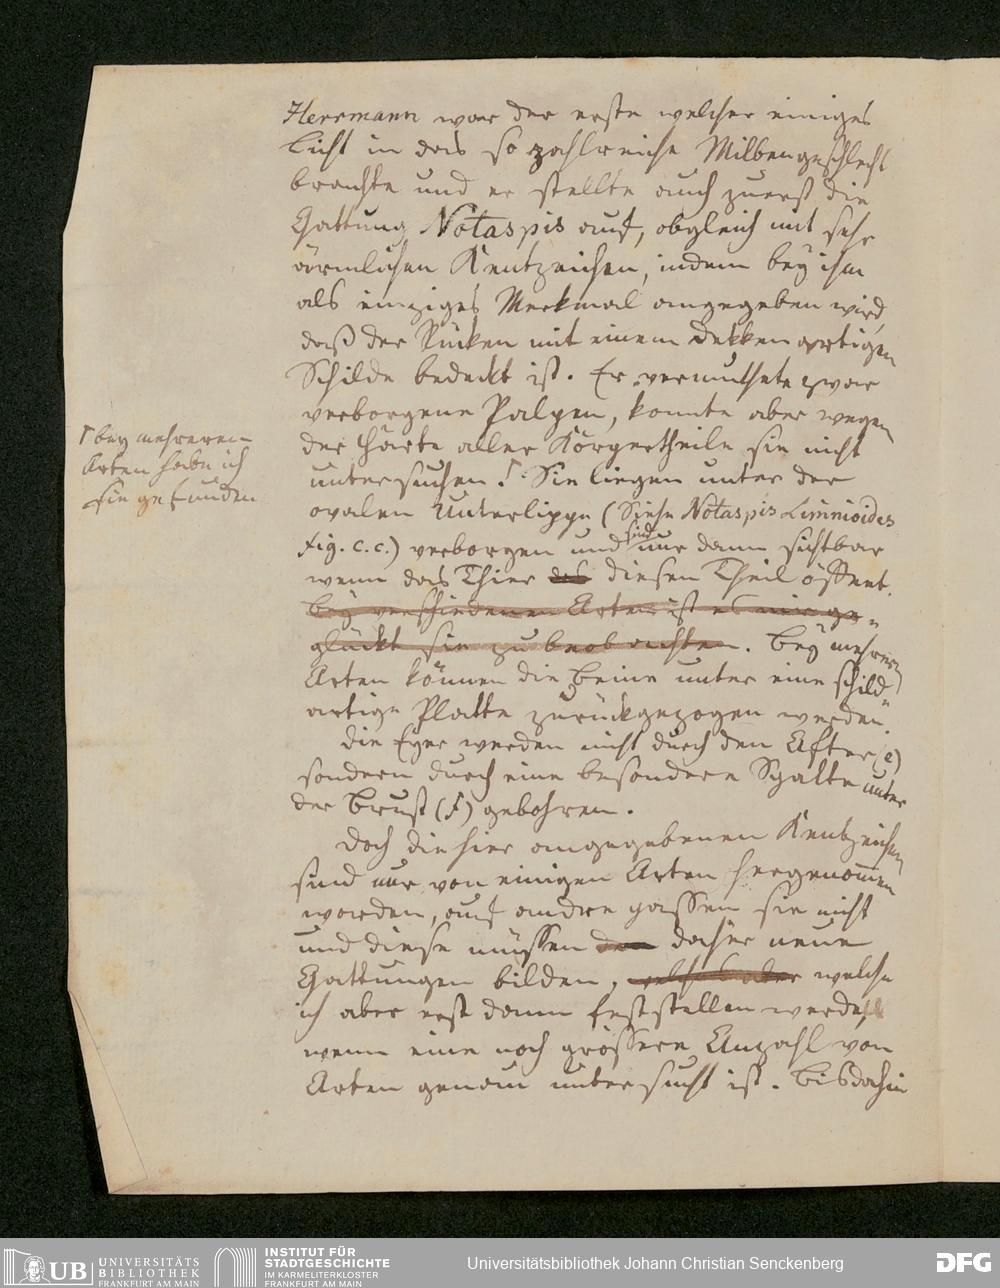 Herrmann war der erste welcher einiges
Licht in das so zahlreiche Milbengeschlecht
brachte und er stellte auch zuerst die
Gattung Notaspis auf, obgleich mit sehr
ärmlichen Kentzeichen, indem bey ihm
als einziges Merkmal angegeben wird,
daß der Rücken mit einem dekkenartigen
Schilde bedeckt ist. Er vermuthete zwar
verborgene Palpen, konnte aber wegen
der Härte aller Körpertheile sie nicht
untersuchen. Γ Sie liegen unter der
Γ bey mehreren
Arten habe ich
sie gefunden
ovalen Unterlippe (Siehe Notaspis Limnioides
Fig. c.c.) verborgen und sind nur dann sichtbar
wenn das Thier des diesen Theil öffnet.
Bey verschiedenen Arten ist es mir ge-
glückt sie zu beobachten. Bey mehrern
Arten können die Beine unter eine schild-
artige Platte zurückgezogen werden.
Die Eyer werden nicht durch den After (e)
sondern durch eine besondere Spalte unter
der Brust (f) gebohren.
Doch die hier angegebenen Kentzeichen
sind nur von einigen Arten hergenom̄en
worden, auf andre passen sie nicht
und diese müssen daher neue
Gattungen bilden, welches aber welche
ich aber erst dann feststellen werde,
wenn eine noch grössere Anzahl von
Arten genau untersucht ist. Bis dahin
UB UNIVERSITÄTS
BIBLIOTHEK
FRANKFURT AM MAIN
INSTITUT FÜR
STADTGESCHICHTE
IM KARMELITERKLOSTER
FRANKFURT AM MAIN
Universitätsbibliothek Johann Christian Senckenberg
DFG